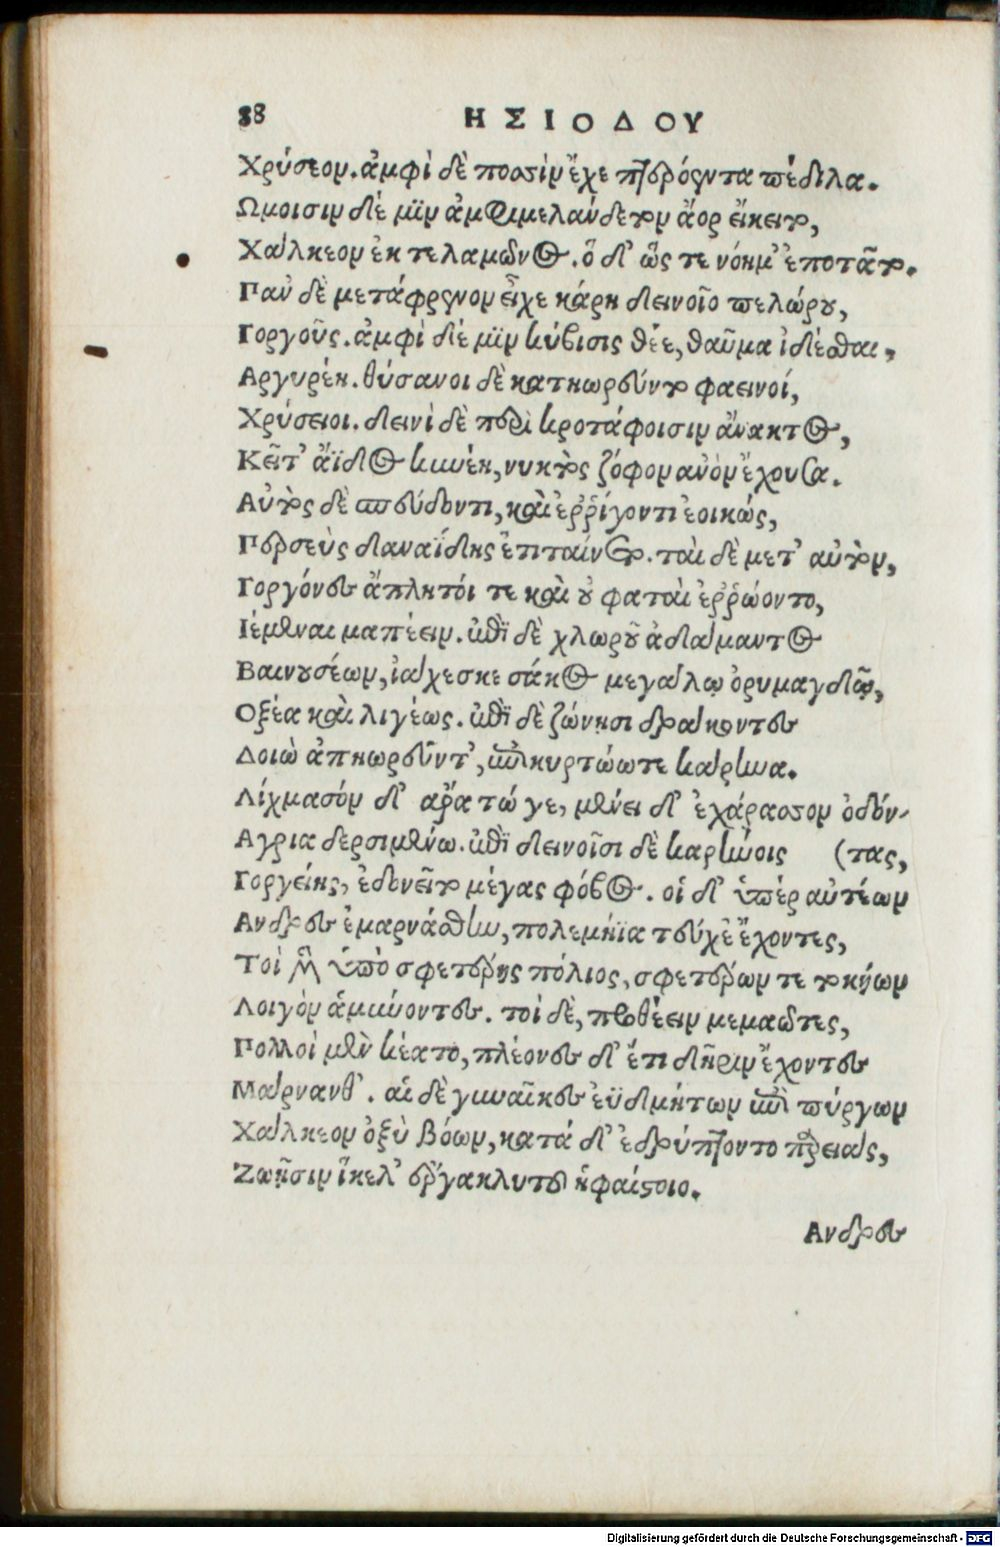 88 ΗΣΙΟΔΟΥ
Χρύσεον. ἀμφὶ δὲ ποσσὶν ἔχε πτερόεντα πέδιλα.
Ωμοισιν δέ μιν ἀμφιμελάνδετον ἄορ ἔκειτο,
Χάλκεον ἐκ τελαμῶνος. ὃ δ' ὥς τε νόημ' ἐποτᾶτο.
Παν δὲ μετάφρενον εἶχε κάρη δεινοῖο πελώρου,
Γοργοῦς. ἀμφὶ δέ μιν κύβισις θέε, θαῦμα ἰδέσθαι,
Αργυρέη. θύσανοι δὲ κατηωρεύντο φαεινοί,
Χρύσειοι. δεινὴ δὲ περὶ κροτάφοισιν ἄνακτος,
Κεῖτ' ἄϊδος κυνέη, νυκτὸς ζόφον αἰνὸν ἔχουσα.
Αὐτὸς δὲ σπεύδοντι, καὶ ἐῤῥίγοντι ἐοικώς,
Περσεὺς δαναΐδης ἐτιταίνετο. ταὶ δὲ μετ' αὐτὸν,
Γοργόνες ἄπλητόι τε καὶ οὐ φαταὶ ἐῤῥώοντο,
Ιέμεναι μαπέειν. ἐπὶ δὲ χλωροῦ ἀδάμαντος
Βαινουσέων, ἰάχεσκε σάκος μεγάλῳ ὀρυμαγδῷ,
Οξέα καὶ λιγέως. ἐπὶ δὲ ζώνῃσι δράκοντες
Δοιὼ ἀπηωρεῦντ', ἐπικυρτώωτε κάρηνα.
Λίχμασόν δ' ἄρα τώ γε, μένει δ' ἐχάρασσον ὀδόν-
Αγρια δερσιμένω. ἐπὶ δεινοῖσι δὲ καρήνοις (τας,
Γοργείης, ἐδονεῖτο μέγας φόβος. οἱ δ' ὑπὲρ αὐτέων
Ανδρες ἐμαρνάσθην, πολεμήϊα τεύχε' ἔχοντες,
Τοὶ μὲν ὑπὸ σφετέρης πόλιος, σφετέρων τε τοκήων
Λοιγὸν ἀμύοντες. τοὶ δὲ, πραθέειν μεμαῶτες,
Πολλοὶ μὲν κέατο, πλέονες δ' ἔτι δῆριν ἔχοντες
Μάρνανθ'. αἱ δὲ γυναῖκες ἐϋδμήτων ἐπὶ πύργων
Χάλκεον ὀξὺ βόων, κατά δ' ἐδρύπτοντο παρειάς,
Ζωῇσιν ἴκελ' ἔργα κλυτοῦ ἡφαίστοιο.
Ανδρες
Digitalisierung gefördert durch die Deutsche Forschungsgemeinschaft - DFG